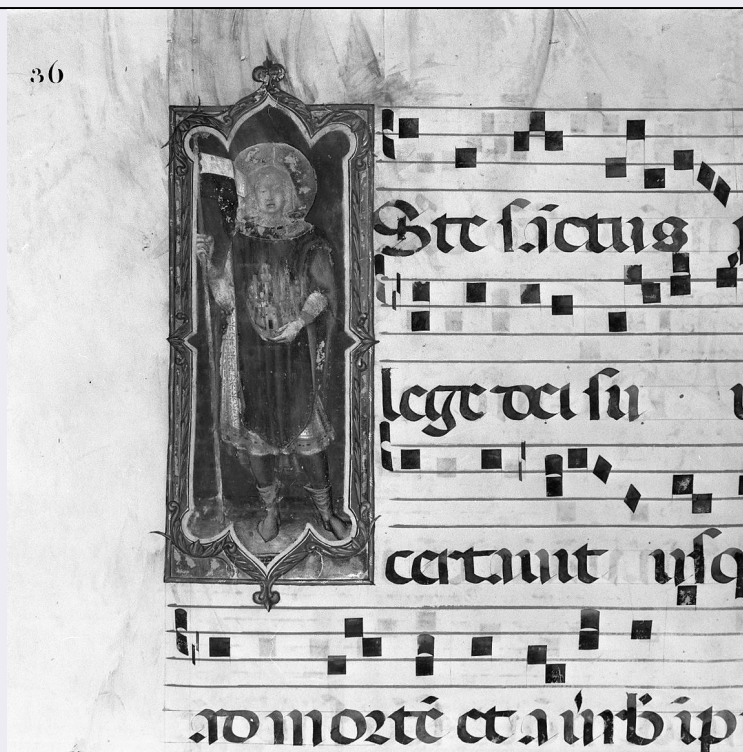 36
Ste sāctus
lege dei sui
certauit usq
ad mortē et a uerb ip